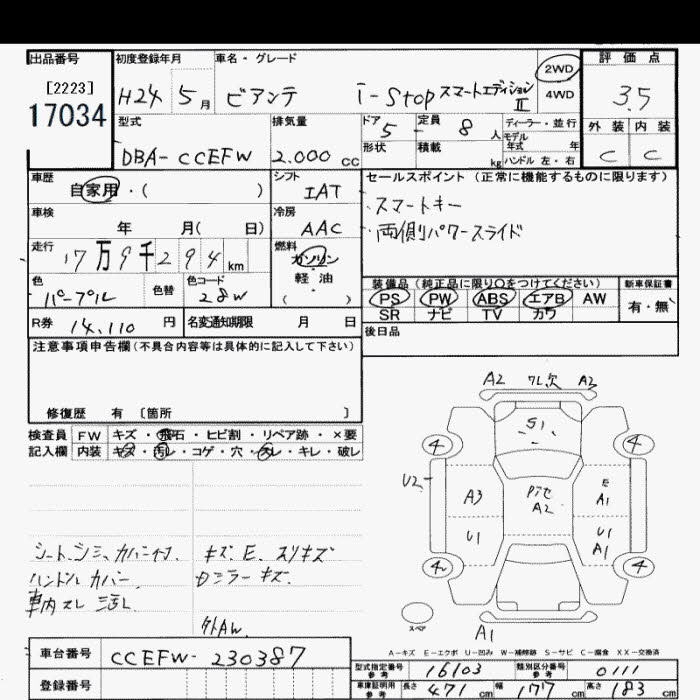 出品番号 初度登録年月 車名・グレード 2WD 評価点
[2223] H24 5月 ビアンテ i-Stop スマートエディションⅡ 4WD 3.5
17034
型式 排気量 ドア 5 定員 8人 ディーラー・並行 外装 内装
DBA-CCEFW 2.000 cc 形状 積載 kg モデル年式 年 C C
ハンドル 左・右
車歴 自家用・( ) シフト IAT セールスポイント(正常に機能するものに限ります)
車検 年 月( 日) 冷房 AAC ・スマートキー
走行 17万9千294km 燃料 ガソリン ・両側パワースライド
軽油
( )
色 パープル 色替 色コード 28W
装備品(純正品に限り○をつけてください) 新車保証書
PS PW ABS エアB AW 有・無
SR ナビ TV カワ
R券 14,110円 名変通知期限 月 日 後日品
注意事項申告欄(不具合内容等は具体的に記入して下さい)
修復歴 有 [箇所 ]
検査員 FW キズ・飛石・ヒビ割・リペア跡・×要
記入欄 内装 キズ・汚レ・コゲ・穴・スレ・キレ・破レ
A2 ワレ欠 A2
S1
4 4
U2
A3 アンテ A2 E A1
U1 U1 A1
4 4
スペア
A1
キズ.E.スリキズ
ハンドルカバー
外AW.
A-キズ E-エクボ U-凹み W-補修跡 S-サビ C-腐食 XX-交換済
車台番号 CCEFW-230387
登録番号
型式指定番号 参考 16103 類別区分番号 参考 0111
車庫証明用 参考 長さ 471cm 幅 177cm 高さ 183cm